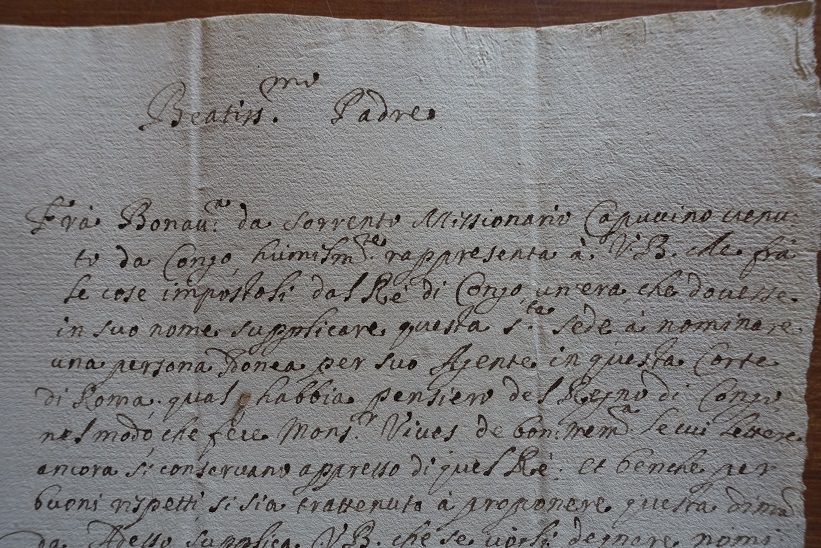 Beatiss.mo Padre
Frà Bonau.ra da Sorrento Missionario Capuccino uenu-
to da Congo, humilm.te rappresenta à V.B. che frà
le cose impostoli dal Rè di Congo, un'era che douesse
in suo nome supplicare questa S.ta Sede à nominare
una persona Idonea per suo Agente in questa Corte
di Roma, qual habbia pensiero del Regno di Congo
nel modo, che fece Mons.r Viues de bon: mem.a le cui lettere
ancora si conseruano appresso di quel Rè: et benche per
buoni rispetti si sia trattenuto à proponere questa diman
da Adesso supplica V.B. che se uogli degnare nomi-